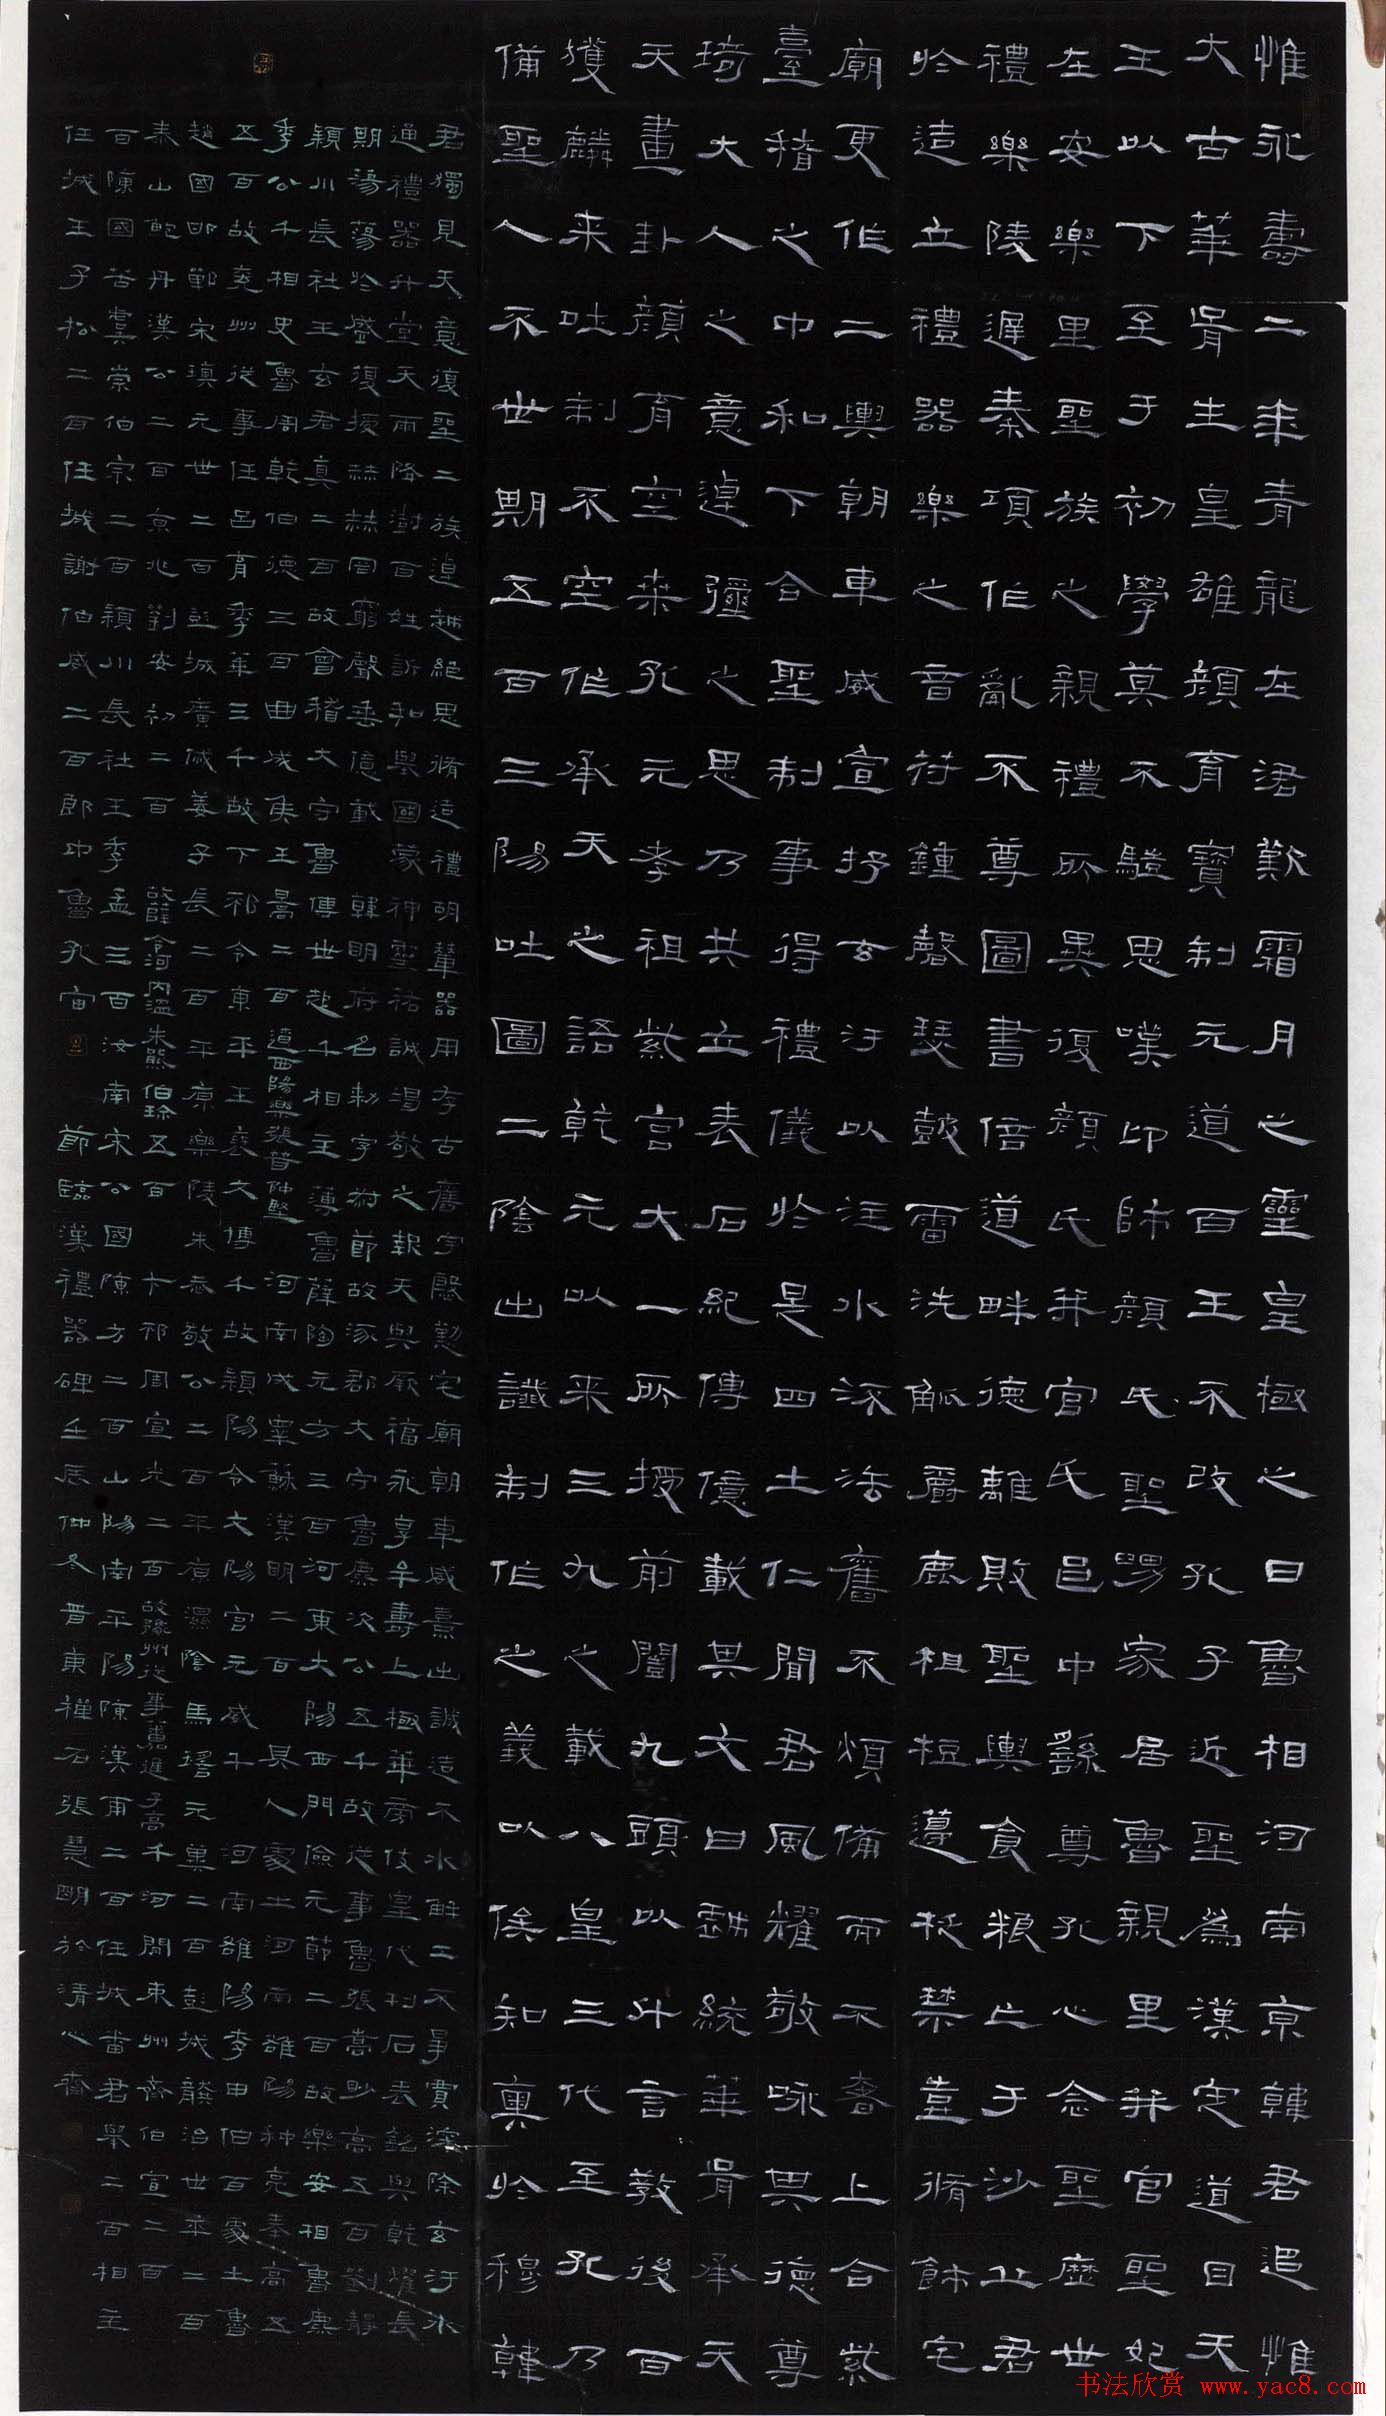 惟永壽二年青龍在涒歎霜月之靈皇極之日魯相河南京韓君追惟
大古華胥生皇雄顏育寶制元道百王不改孔子近聖為漢定道自天
王以下至于初學莫不驥思嘆卬師顏氏聖舅家居魯親里并官聖妃
在安樂里聖族之親禮所異復顏氏并官氏邑中繇尊孔心念聖歷世
禮樂陵遲秦項作亂不尊圖書倍道畔德離敗聖輿食粮亡于沙丘君
於造立禮器樂之音符鍾磬瑟鼓雷洗觚爵鹿柤梪籩柉禁壺脩飾宅
廟更作二輿朝車威宣抒玄汙以注水流法舊不煩備而不奢上合紫
臺稽之中和下合聖制事得禮儀於是四土仁聞君風耀敬咏其德尊
琦大人之意逴彌之思乃共立表石紀傳億載其文曰戲統華胥承天
天畫卦顏育空桒孔元孝祖紫宮大一所授前闓九頭以升言教後百
獲麟来吐制不空作承天之語乾元以来三九之載八皇三代至孔乃
備聖人不世期五百三陽吐圖二陰出讖制作之義以俟知奧於穆韓
君獨見天意復聖二族逴越絕思脩造禮胡輦器用存古舊宇殷勤宅廟朝車威熹出誠造不水解工不爭賈深除玄汙水
通禮器升堂天雨降澍百姓訢和舉國蒙神靈祐誠竭敬之報天與厥福永享牟壽上極華旁伎皇代刊石表銘與乾燿長
期蕩蕩於盛復授赫赫罔窮聲垂億載 韓明府名勑字叔節故涿郡大守魯麃次公五千故從事魯張嵩眇高五百劉靜
穎川長社王玄君真二百故會稽大守魯傅世起千相主薄魯薛陶元方三百河東大陽西門儉元節二百故樂安相魯麃
季公千相史魯周乾伯德三百曲成侯王暠二百 遼西陽樂張普仲堅 河南成睪蘇漢明二百 其人處士河南雒陽种亮奉高五
五百故兗州從事任呂育季華三千故下邳令東平王褒文博千故穎陽令文陽宮元威千 河南雒陽李申伯百處士魯
趙國邯鄲宋瑱元世二百彭城廣戚姜子長二百平原樂陵朱恭敬公二百平原濕陰馬瑤元冀二百彭城龔治世平二百
泰山鮑丹漢公二百京兆劉安初二百 故薛令河内溫朱熊伯珍五百 下邳周宣光二百 故豫州從事蕃進子高千河間束州齊伯宣二百
百陳國苦虞崇伯宗二百穎川長社王季孟三百汝南宋公國陳方二百山陽南平陽陳漢甫二百任城番君舉二百相主
任城王子松二百任城謝伯威二百郎中魯孔宙 節臨漢禮器碑壬辰仲冬晋東禪石張慧明於清心齋
书法欣赏 www.yac8.com